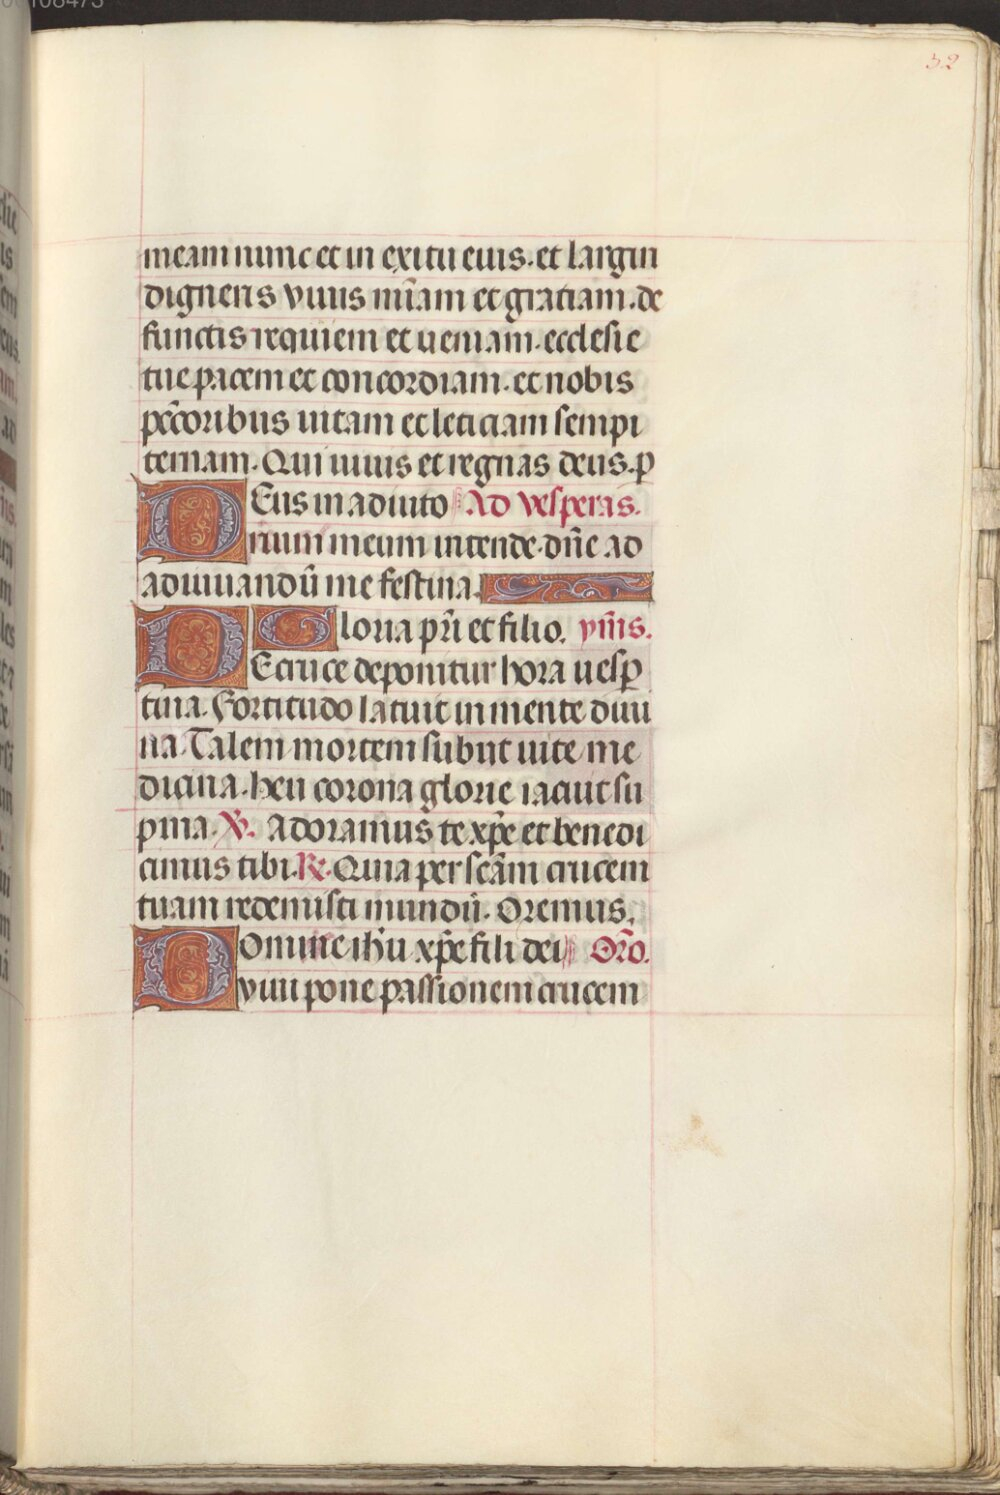 32
meam nunc et in exitu euis. et largiri
digneris viuis miã am et gratiam. de
functis requiem et ueniam. ecclesie
tue pacem et concordiam. et nobis
pccoribus uitam et leticiam sempi
ternam. Qui uiuis et regnas deus. p
DEus in adiuto Ad vesperas.
rium meum intende. dñe ad
adiuuandũ me festina.
Gloria pr̃i et filio. ymñs.
DE cruce deponitur hora uesp̃
tina. Fortitudo latuit in mente diui
na. Talem mortem subiit uite me
dicina. heu corona glorie iacuit su
pina. V̶. Adoramus te xp̃e et benedi
cimus tibi. R̶. Quia per scãm crucem
tuam redemisti mundũ. Oremus.
DOmine ihũ xp̃e fili dei Orõ.
viui pone passionem crucem